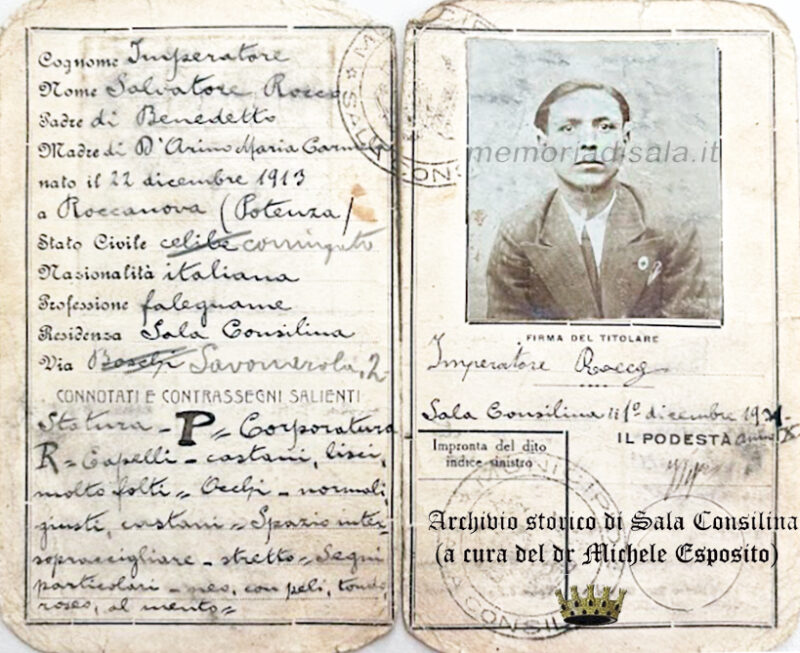 Cognome Imperatore
Nome Salvatore Rocco
Padre di Benedetto
Madre di D'Arino Maria Carmela
nato il 22 dicembre 1913
a Roccanova (Potenza)
Stato Civile celibe coniugato
Nazionalità italiana
Professione falegname
Residenza Sala Consilina
Via Boschi Savonarola, 2
CONNOTATI E CONTRASSEGNI SALIENTI
Statura - P = Corporatura
R = Capelli - castani, lisci,
molto folti = Occhi - normali,
giusti, castani = Spazio inter-
sopraccigliare - stretto = Segni
particolari - neo, con peli, tondo,
roseo, al mento =
memoriadisala.it
FIRMA DEL TITOLARE
Imperatore Rocco
Sala Consilina 1º dicembre
IL PODESTÀ
Impronta del dito
indice sinistro
Archivio storico di Sala Consilina
(a cura del dr Michele Esposito)